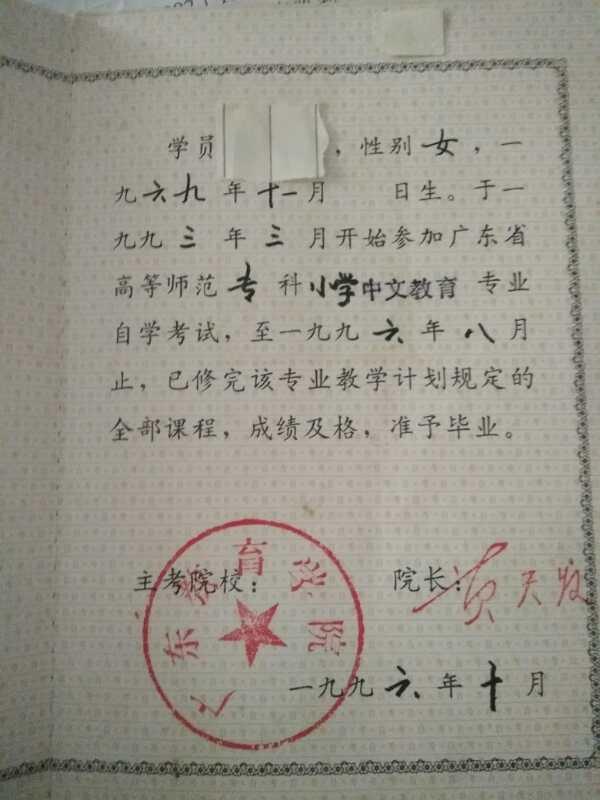 学员 ，性别女，一
九六九年十一月 日生。于一
九九三年三月开始参加广东省
高等师范专科小学中文教育专业
自学考试，至一九九六年八月
止，已修完该专业教学计划规定的
全部课程，成绩及格，准予毕业。
主考院校： 院长：
广东教育学院
一九九六年十月